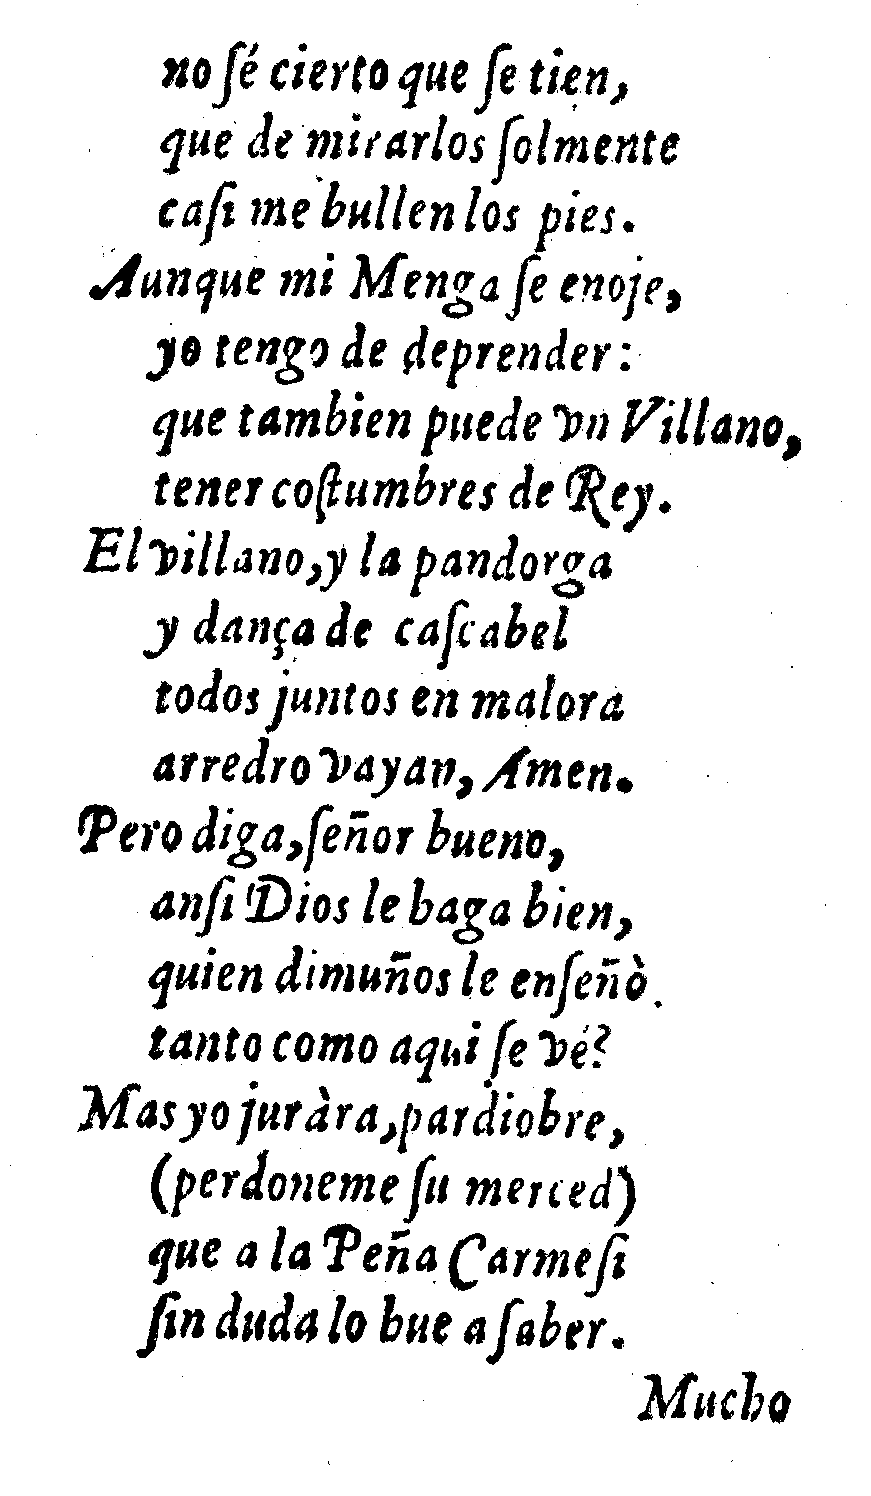 no ſé cierto que ſe tien,
que de mirarlos ſolmente
caſi me bullen los pies.
Aunque mi Menga ſe enoje,
yo tengo de deprender:
que tambien puede vn Villano,
tener coſtumbres de Rey.
El villano, y la pandorga
y dança de caſcabel
todos juntos en malora
arredro vayan, Amen.
Pero diga, ſeñor bueno,
anſi Dios le haga bien,
quien dimuños le enſeñò
tanto como aqui ſe vé?
Mas yo juràra, pardiobre,
(perdoneme ſu merced)
que a la Peña Carmeſi
ſin duda lo hue a ſaber.
Mucho